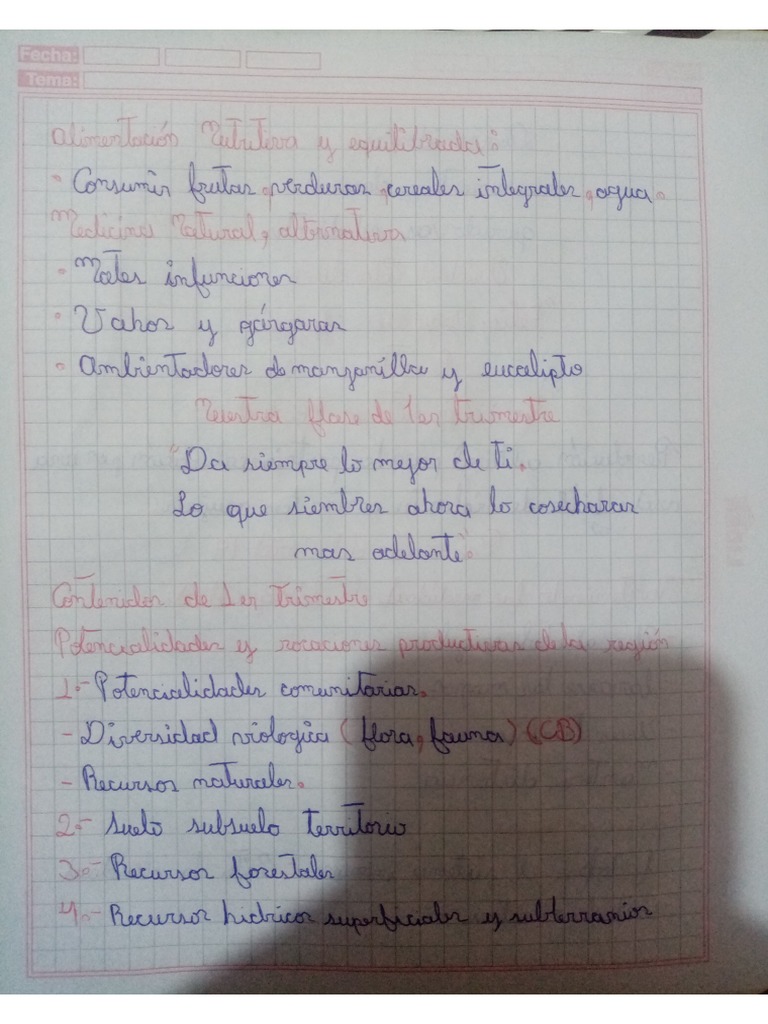 Fecha:
Tema:
Alimentación Nutritiva y equilibrada:
• Consumir frutas, verduras, cereales integrales, agua.
Medicina Natural, alternativa
• Mates infunciones
• Vahos y gárgaras
• Ambientadores de manzanilla y eucalipto
Nuestra flase de 1er trimestre
"Da siempre lo mejor de ti.
Lo que siembres ahora lo cosecharas
mas adelante"
Contenidos de 1er Trimestre
Potencialidades y vocaciones productivas de la región
1.- Potencialidades comunitarias.
- Diversidad viologica (flora, fauna) (CB)
- Recursos naturales.
2.- Suelo subsuelo territorio
3.- Recursos forestales
4.- Recursos hidricos superficiales y subterranios